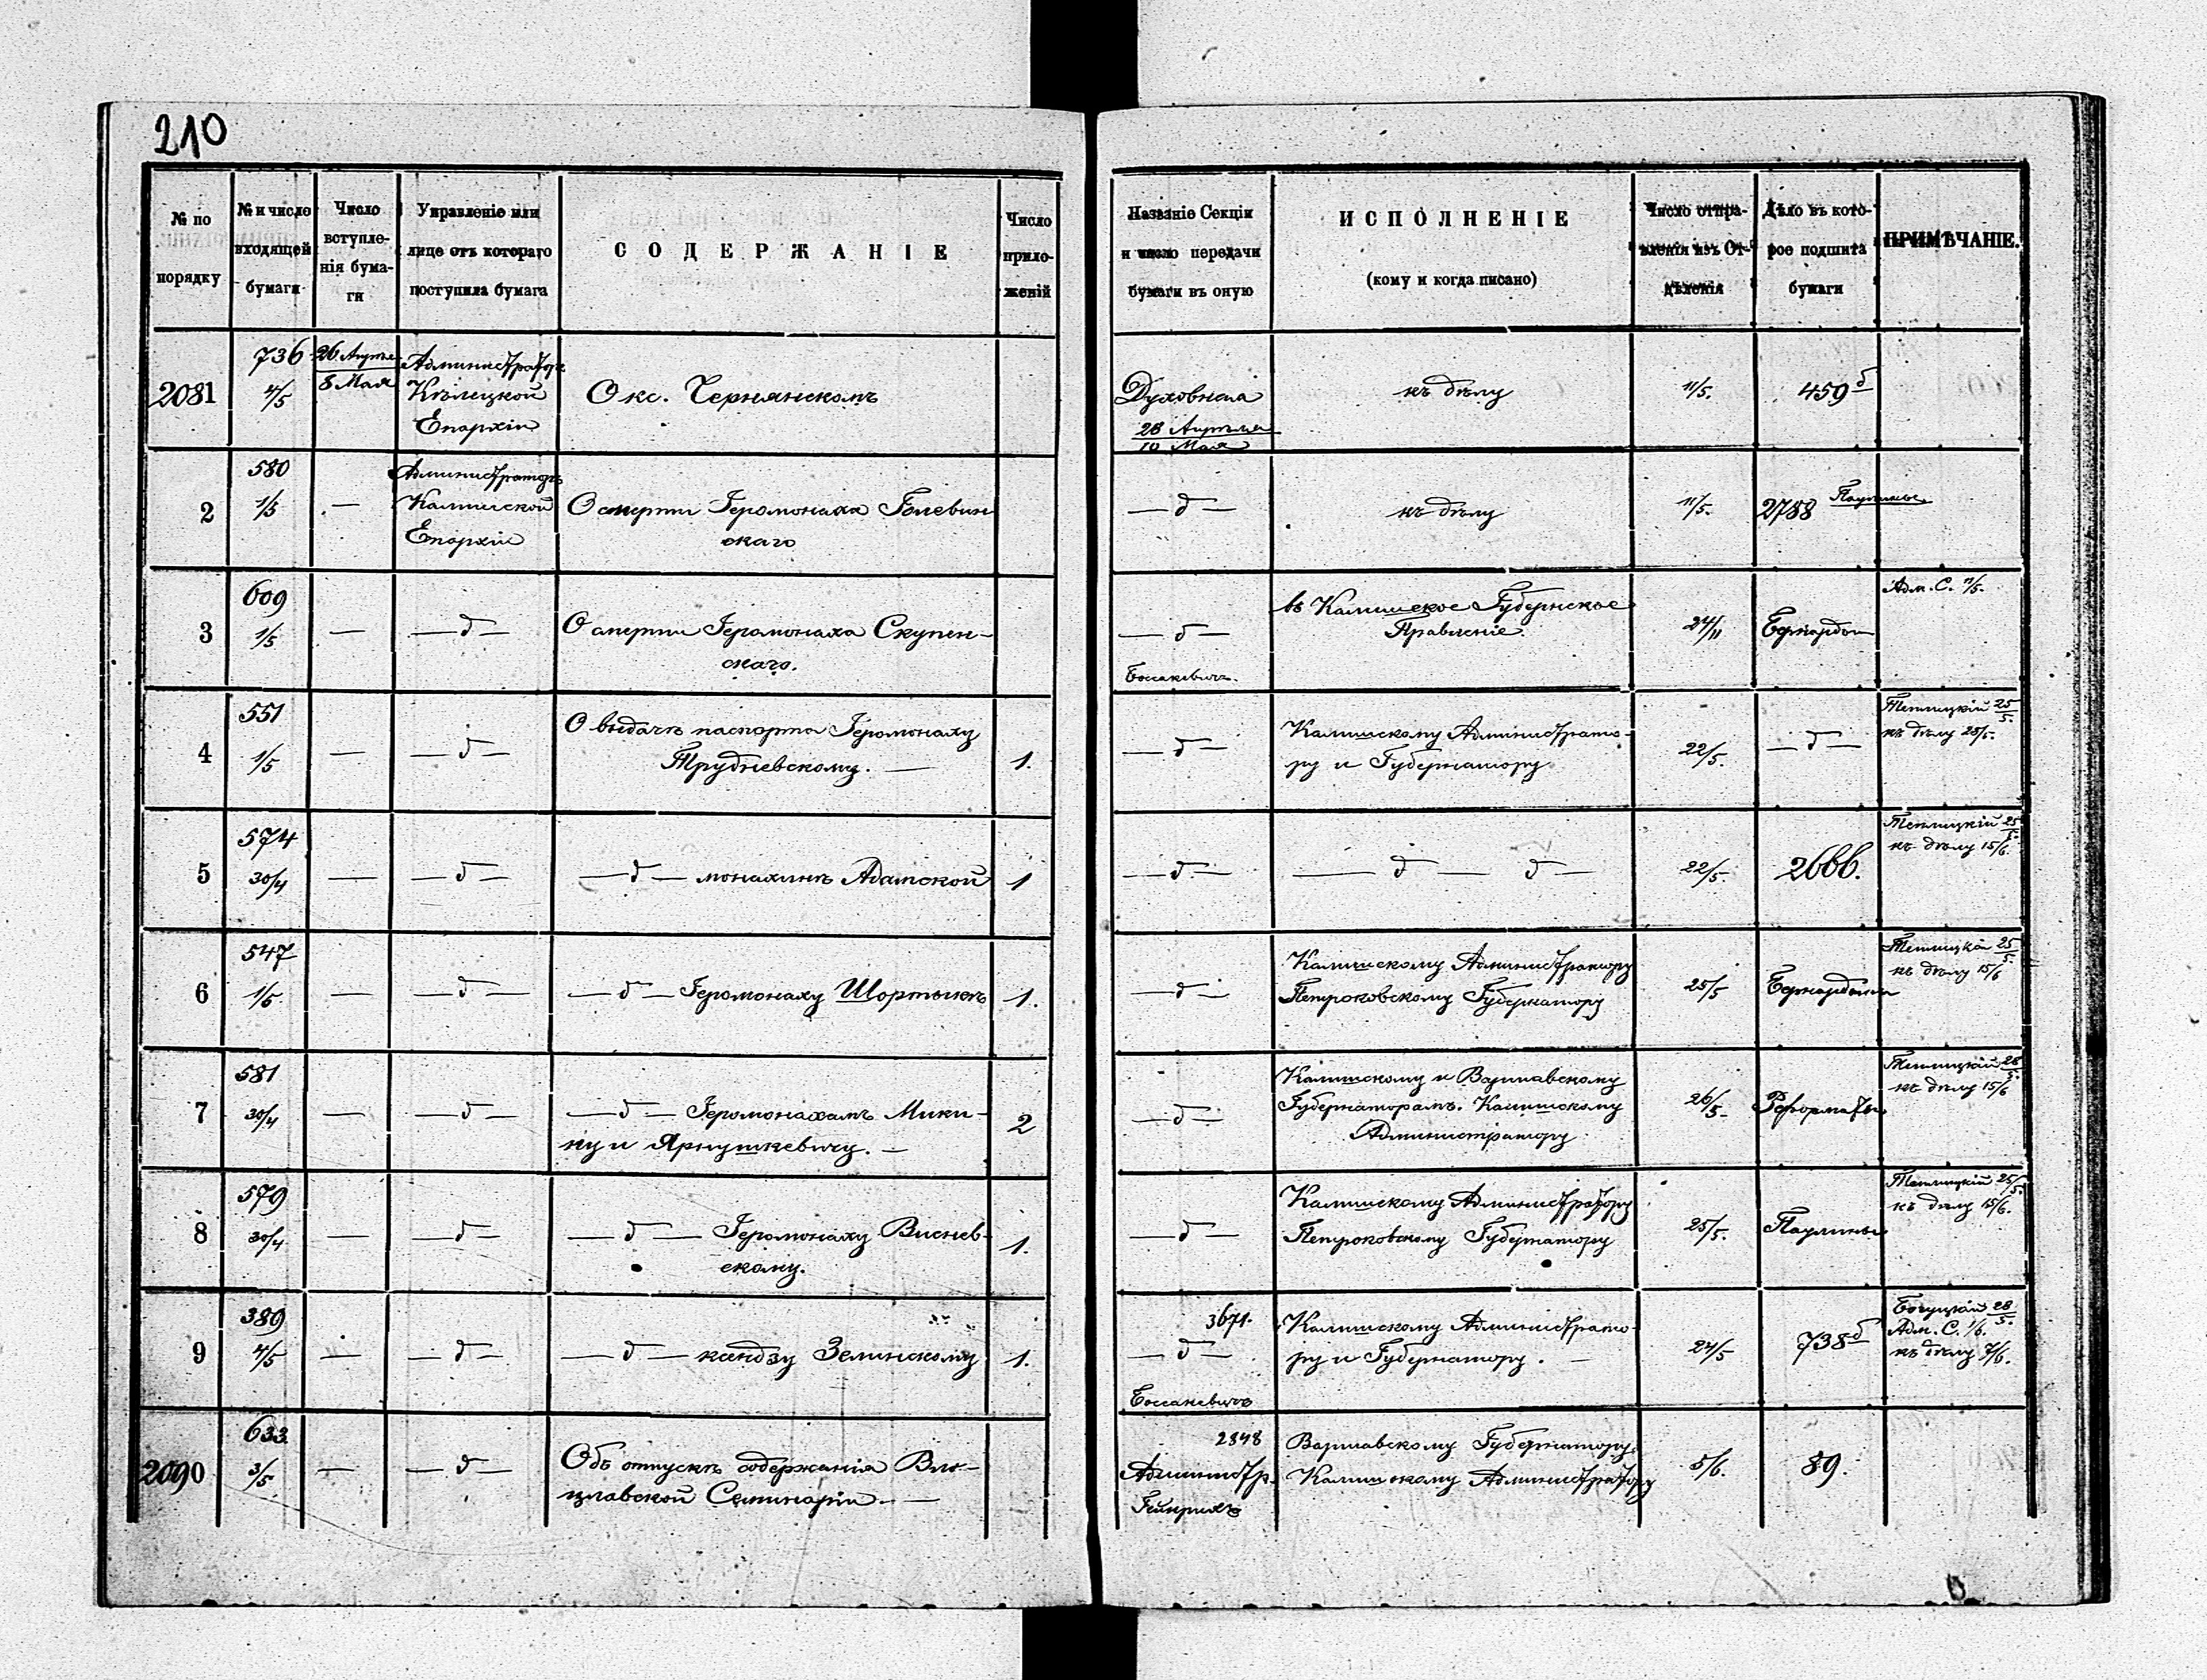 210
№ по порядку
№ и число входящей бумаги
Число вступленія бумаги
Управленіе или лице отъ котораго поступила бумага
СОДЕРЖАНІЕ
Число приложеній
Названіе Секціи и число передачи бумаги въ оную
ИСПОЛНЕНІЕ
(кому и когда писано)
Число отправленія изъ Отдѣленія
Дѣло въ которое подшита бумаги
ПРИМѢЧАНІЕ.
2081
736
4/5
26 Апрѣля
8 Мая
Администраторъ
Кѣлецкой
Епархіи
О кс. Чернянскомъ
Духовная
28 Апрѣля
10 Мая
къ дѣлу
11/5.
459 б
2
580
1/5
—
Администраторъ
Калишской
Епархіи
О смерти Іеромонаха Голевин
скаго
— д —
къ дѣлу
11/5.
2788 Паулины
3
609
1/5
—
— д —
О смерти Іеромонаха Скупен-
скаго.
— д —
Боссакевичъ.
въ Калишское Губернское
Правленіе
24/11
Бернардын
Адм. С. 11/5.
4
551
1/5
—
— д —
О выдачѣ паспорта Іеромонаху
Трудневскому. —
1.
— д —
Калишскому Администрато-
ру и Губернатору
22/5.
— д —
Теплицкій 25/5.
къ дѣлу 28/5.
5
574
30/4
—
— д —
— д — монахинѣ Адамской
1
— д —
— д — д —
22/5.
2666.
Теплицкій 25/5.
къ дѣлу 15/6.
6
547
1/5
—
— д —
— д — Іеромонаху Шортыкѣ
1.
— д —
Калишскому Администратору
Петроковскому Губернатору
25/5
Бернардыны
Теплицкій 25/5.
къ дѣлу 15/6
7
581
30/4
—
— д —
— д — Іеромонахамъ Мики-
ну и Ярнушкевичу. —
2
— д —
Калишскому и Варшавскому
Губернаторамъ. Калишскому
Администратору
26/5.
Реформаты
Теплицкій 28/5.
къ дѣлу 15/6
8
579
30/4
—
— д —
— д — Іеромонаху Виснев-
скому.
1.
— д —
Калишскому Администратору
Петроковскому Губернатору
25/5.
Паулины
Теплицкій 25/5.
къ дѣлу 15/6.
9
389
4/5
—
— д —
— д — ксендзу Зелинскому
1.
3671.
— д —
Боссакевичъ
Калишскому Администрато-
ру и Губернатору. —
24/5
738 б
Богуцкій 28/5.
Адм. С. 1/6.
къ дѣлу 7/6.
2090
633
3/5
—
— д —
Объ отпускѣ содержанія Вло-
цлавской Семинаріи. —
2348
Администр.
Гейнрихъ
Варшавскому Губернатору.
Калишскому Администратору
5/6.
89.